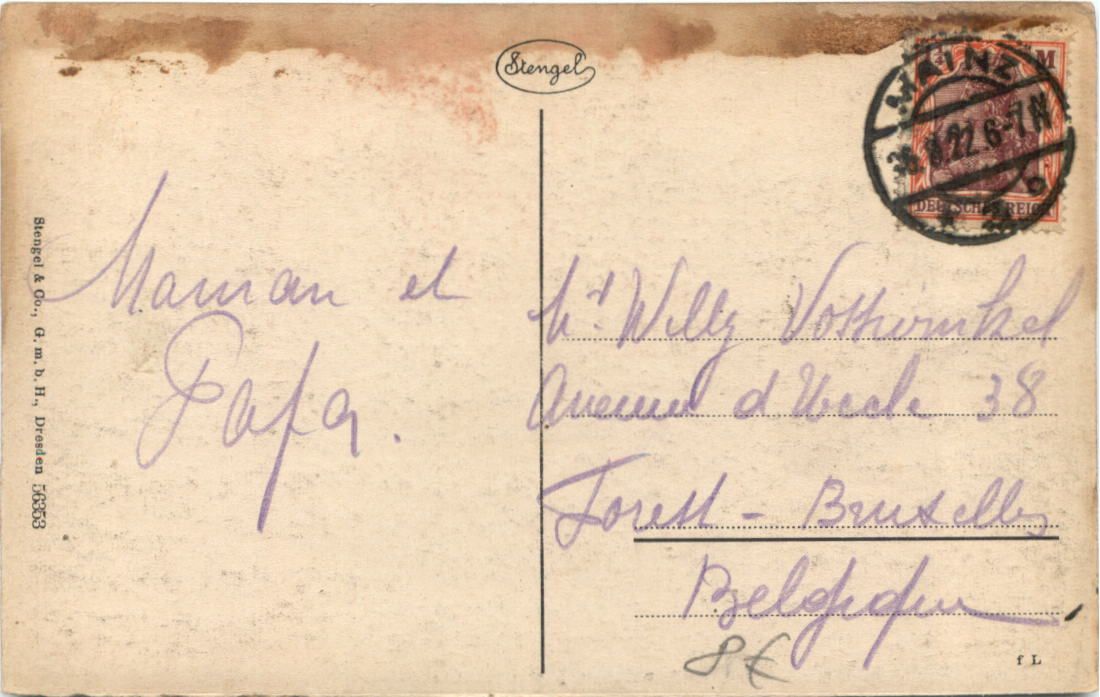 Stengel
M
MAINZ
8.22 6-7N
DEUTSCHES REICH
Maman et
Papa.
Mr Willy
Avenue d'Uccle 38
Forest - Bruxelles
Belgique
8€
f L
Stengel & Co., G. m. b. H., Dresden 56353